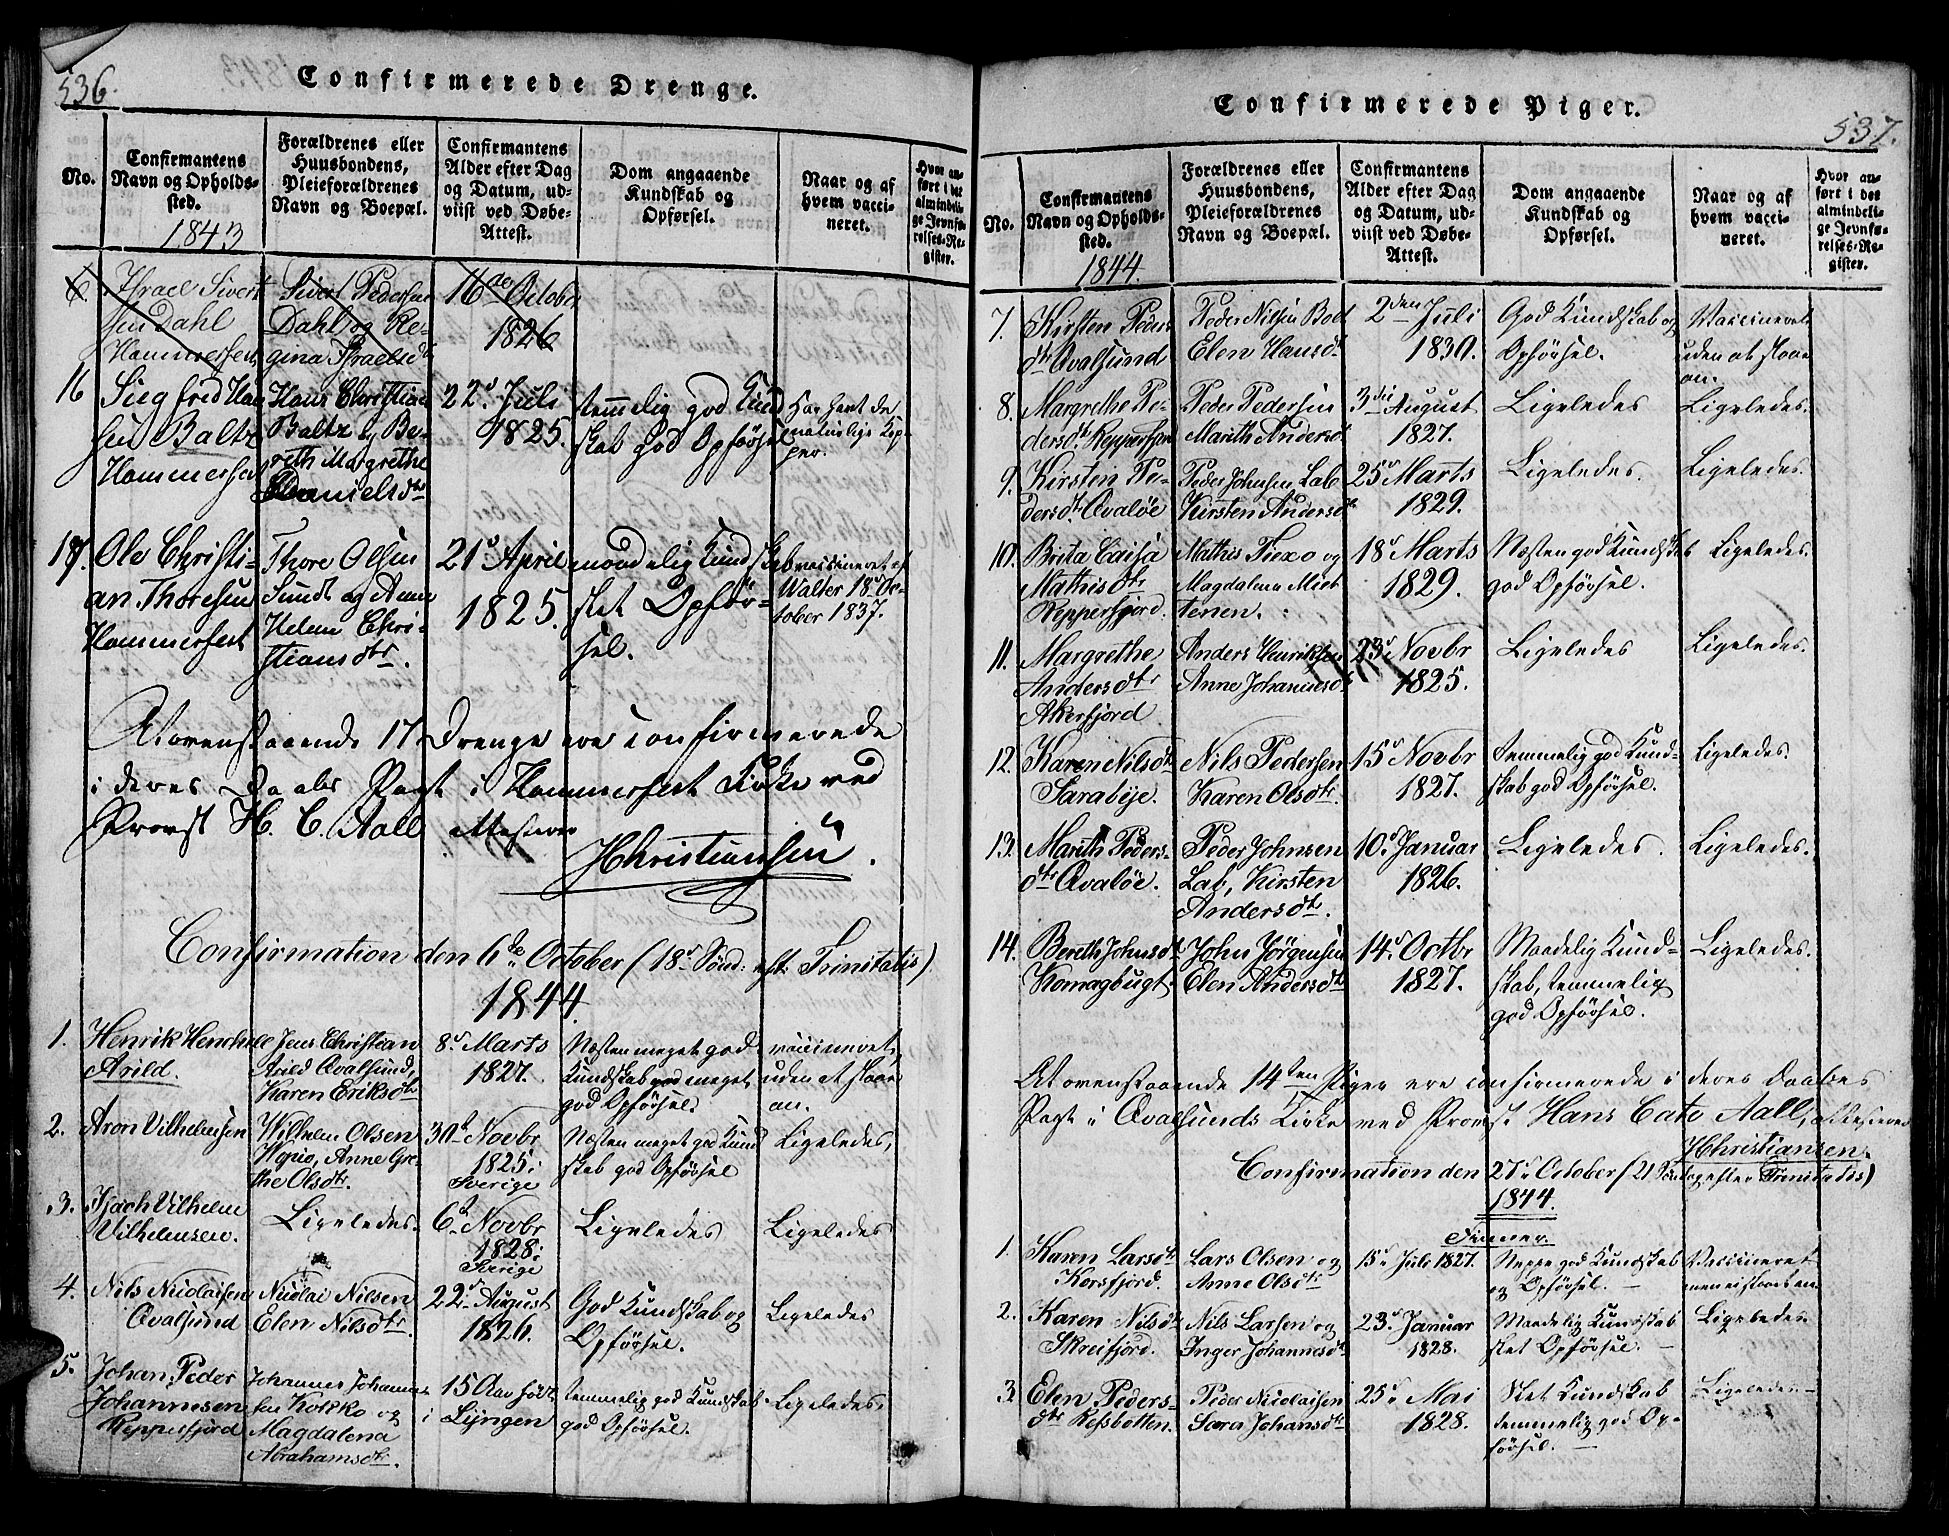 536.
Confirmerede Drenge.
No.
Confirmantens
Navn og Opholds-
sted.
1843
Forældrenes eller
Huusbondens,
Pleieforældrenes
Navn og Boepæl.
Confirmantens
Alder efter Dag
og Datum, ud-
viist ved Døbe-
Attest.
Dom angaaende
Kundskab og
Opførsel.
Naar og af
hvem vacci-
neret.
Hvor an-
ført i det
almindeli-
ge Jevnfø-
relses-Re-
gister.
6.
Israel Sivert
sen Dahl
Hammerfest
Sivert Pedersen
Dahl og Re-
gina Israelsdr
16de October
1826
16
Siegfred Han
sen Baltz
Hammerfest
Hans Christian
Baltz og Be-
reth Margrethe
Danielsdtr
22d Juli
1825.
temmelig god Kund
skab god Opførsel
Har havt de
naturlige Kop-
per.
17.
Ole Christi-
an Thoresen
Hammerfest
Thore Olsen
Sundt og Anne
Helene Chri-
stiansdtr.
21d April
1825.
maadelig Kundskab
slet Opfør-
sel.
vaccineret af
Walter 18d Oc-
tober 1837.
At ovenstaaende 17 Drenge ere confirmerede
i deres Daabs Pagt i Hammerfest Kirke ved
Provst H. C. Aall attesterer
HChristiansen.
Confirmation den 6te October (18d Sönd. eft. Trinitatis)
1844
1.
Henrik Henchel
Arild.
Jens Christian
Arild Qvalsund,
Karen Eriksdtr
8d Marts
1827.
Næsten meget god
Kundskab god meget
god Opførsel.
vaccineret,
uden at slaae
an.
2.
Aron Vilhelmsen
Wilhelm Olsen
Wopio, Anne Gre-
the Olsdtr.
30d Novbr
1825 i
Sverige
Næsten meget god Kund
skab god Opførsel
Ligeledes,
3.
Isach Vilhelm
Vilhelmsen.
Ligeledes.
6d Novbr
1828 i
Sverige
Ligeledes
Ligeledes
4.
Nils Nicolaisen
Qvalsund
Nicolai Nilsen
Elen Nilsdtr.
22d August
1826.
God Kundskab og
Opførsel.
Ligeledes
5.
Johan Peder
Johannesen
Repperfjord
Johannes Johanne-
sen Kokko og
Magdalena
Abrahamsdtr.
15 Aar født
i Lyngen
temmelig god Kundskab
god Opførsel.
Ligeledes.
Confirmerede Piger.
537.
No.
Confirmantens
Navn og Opholds-
sted.
1844.
Forældrenes eller
Huusbondens,
Pleieforældrenes
Navn og Boepæl.
Confirmantens
Alder efter Dag
og Datum, ud-
viist ved Døbe-
Attest.
Dom angaaende
Kundskab og
Opførsel.
Naar og af
hvem vacci-
neret.
Hvor an-
ført i det
almindeli-
ge Jevnfø-
relses-Re-
gister.
7.
Kirsten Peders
dtr Qvalsund
Peder Nilsen Bod
Elen Hansdtr
2den Juli
1830.
God Kundskab og
Opførsel.
Vaccineret
uden at slaae
an.
8.
Margrethe Pe-
dersdtr Repperfjord
Peder Pedersen
Marith Andersdtr
3die August
1827.
Ligeledes
Ligeledes.
9.
Kirsten Pe-
dersdtr. Qvaløe
Peder Johnsen Lab
Kirsten Andersdtr
25d Marts
1829.
Ligeledes.
Ligeledes.
10.
Brita Caisa
Mathisdtr
Repperfjord.
Mathis Fiexo og
Magdalena Mort
tenen.
18d Marts
1829.
Næsten god Kundskab
god Opførsel.
Ligeledes.
11.
Margrethe
Andersdtr
Akerfjord
Anders Henriksen
Anne Johannesdtr
23d Novbr
1825.
Ligeledes
Ligeledes.
12.
Karen Nilsdtr
Sarabye.
Nils Pedersen
Karen Olsdtr.
15d Novbr
1827.
temmelig god Kund-
skab god Opførsel.
Ligeledes.
13.
Marith Peders-
dtr Qvaløe.
Peder Johnsen
Lab, Kirsten
Andersdtr.
10d Januar
1826.
Ligeledes.
Ligeledes.
14.
Bereth Johnsdtr
Komagbugt.
John Jörgensen
Elen Andersdtr
14d Octbr
1827.
Maadelig Kund-
skab, temmelig
god Opførsel.
Ligeledes.
At ovenstaaende 14ten Piger ere confirmerede i deres Daabes
Pagt i Qvalsunds Kirke ved Provst Hans Cato Aall, attesterer
HChristiansen.
Confirmation den 27d October (21 Söndag efter Trinitatis)
1844.
Finner.
1.
Karen Larsdtr
Korsfjord.
Lars Olsen og
Anne Olsdtr
15d Juli 1827.
Neppe god Kundskab
og Opførsel.
Vaccineret
men ei slaaet an
2.
Karen Nilsdtr
Skreifjord.
Nils Larsen og
Inger Johannesdtr
23d Januar
1828.
Maadelig Kundskab
slet Opførsel.
Ligeledes
3
Elen Peders-
dtr Refsbotten.
Peder Nicolaisen
Sara Johansdtr
25d Mai
1828.
Slet Kundskab
temmelig god Op-
førsel.
Ligeledes